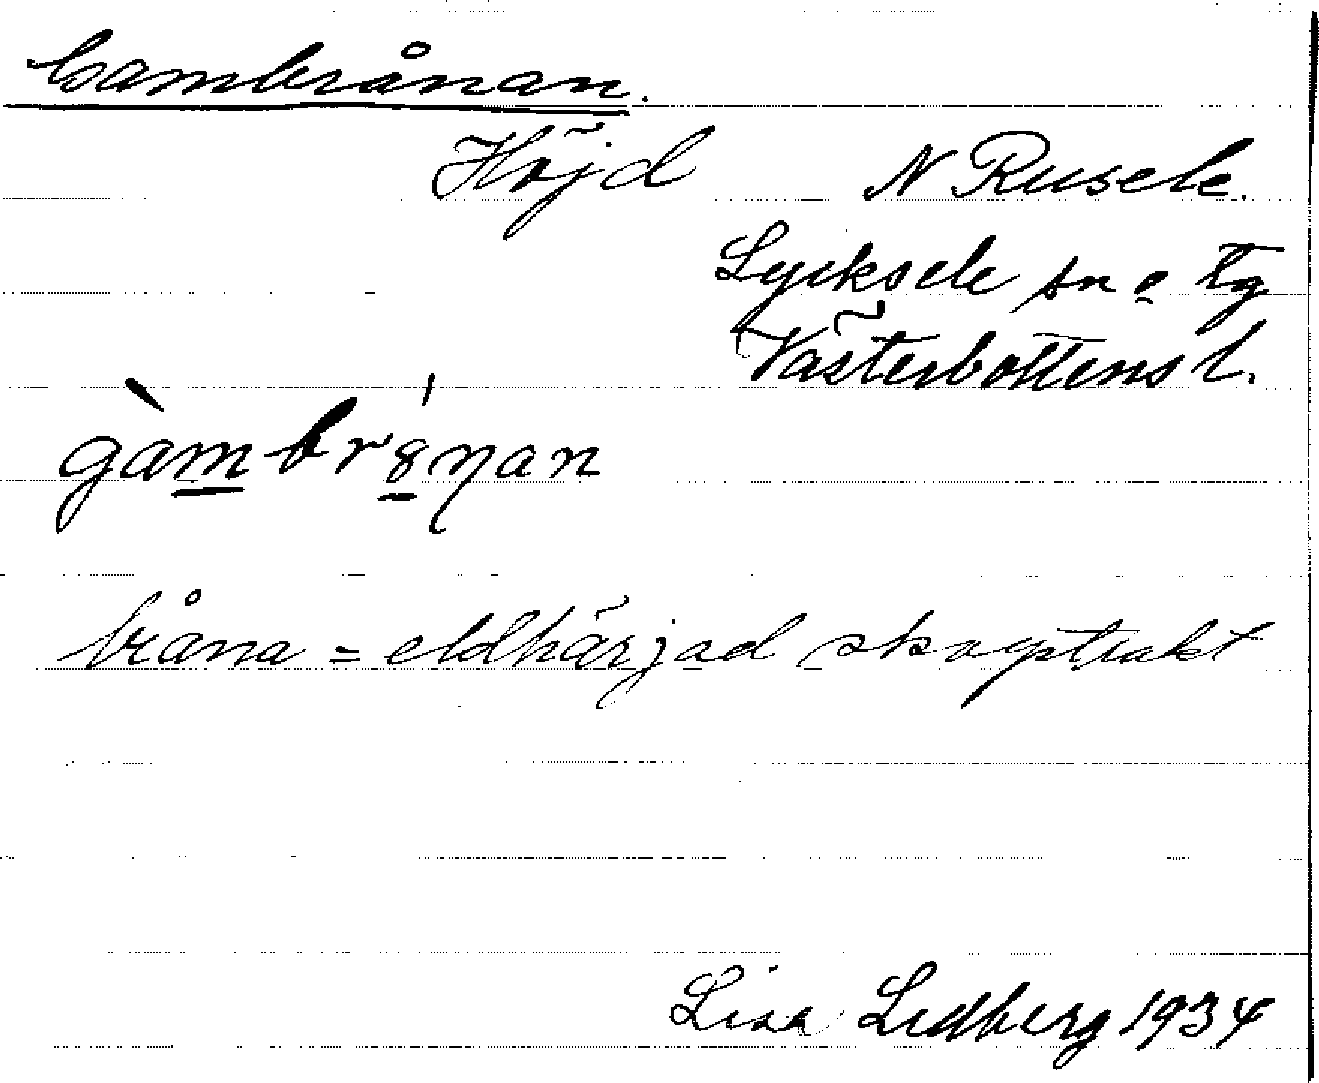 Gambrånan.
Höjd N Rusele.
Lycksele sn o tg
Västerbottens l.
gàm br8́ŋan
bråna = eldhärjad skogstrakt
Lisa Lidberg 1934